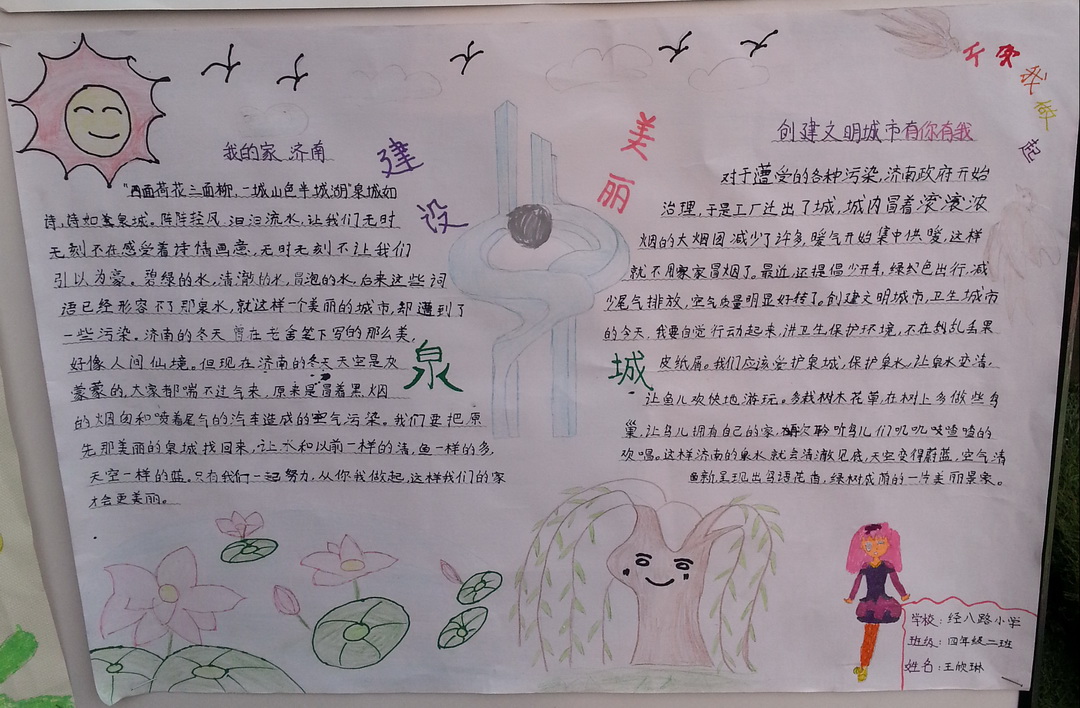 我的家 济南
"四面荷花三面柳,一城山色半城湖"泉城如
诗,诗如画泉城。阵阵轻风,汩汩流水,让我们无时
无刻不在感受着诗情画意,无时无刻不让我们
引以为豪。碧绿的水,清澈的水,冒泡的水,后来这些词
语已经形容不了那泉水,就这样一个美丽的城市,却遭到了
一些污染。济南的冬天 曾在老舍笔下写的那么美,
好像人间仙境。但现在济南的冬天天空是灰
蒙蒙的,大家都喘不过气来,原来是冒着黑烟
的烟囱和喷着尾气的汽车造成的空气污染。我们要把原
先那美丽的泉城找回来,让水和以前一样的清,鱼一样的多,
天空一样的蓝。只有我们一起努力,从你我做起,这样我们的家
才会更美丽。
建
设
美
丽
泉
城
从
我
做
起
创建文明城市有你有我
对于遭受的各种污染,济南政府开始
治理,于是工厂迁出了城,城内冒着滚滚浓
烟的大烟囱减少了许多,暖气开始集中供暖,这样
就不用家家冒烟了。最近,还提倡少开车,绿色出行,减
少尾气排放,空气质量明显好转了。创建文明城市,卫生城市
的今天,我要自觉行动起来,讲卫生保护环境,不在乱丢果
皮纸屑。我们应该爱护泉城,保护泉水,让泉水变清。
让鱼儿欢快地游玩。多栽树木花草在树上多做些鸟
巢,让鸟儿拥有自己的家,再次聆听鸟儿们叽叽喳喳的
欢唱。这样济南的泉水就会清澈见底,天空变得蔚蓝,空气清
新呈现出鸟语花香,绿树成荫的一片美丽景象。
学校:经八路小学
班级:四年级二班
姓名:王欣琳